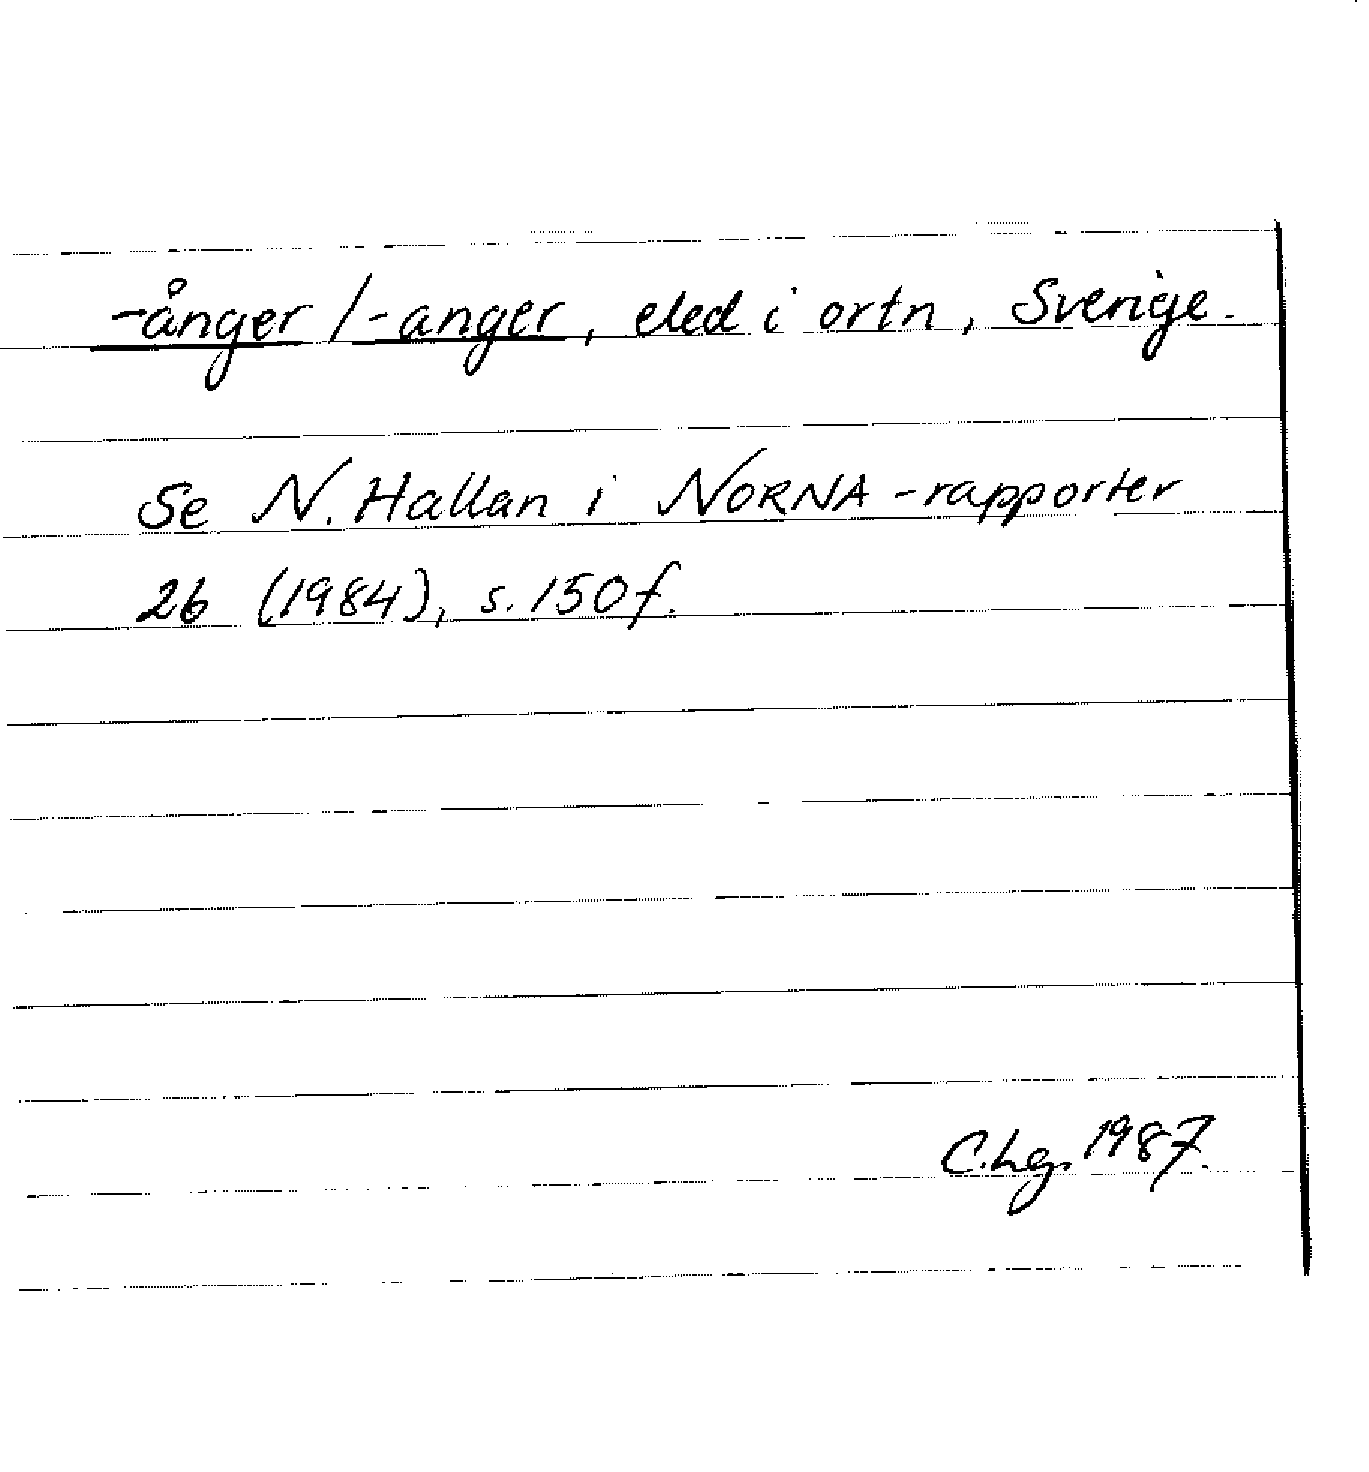 -ånger / -anger, eled i ortn, Sverige.
Se N. Hallan i NORNA-rapporter
26 (1984), s. 150 f.
C.Lg. 1987.